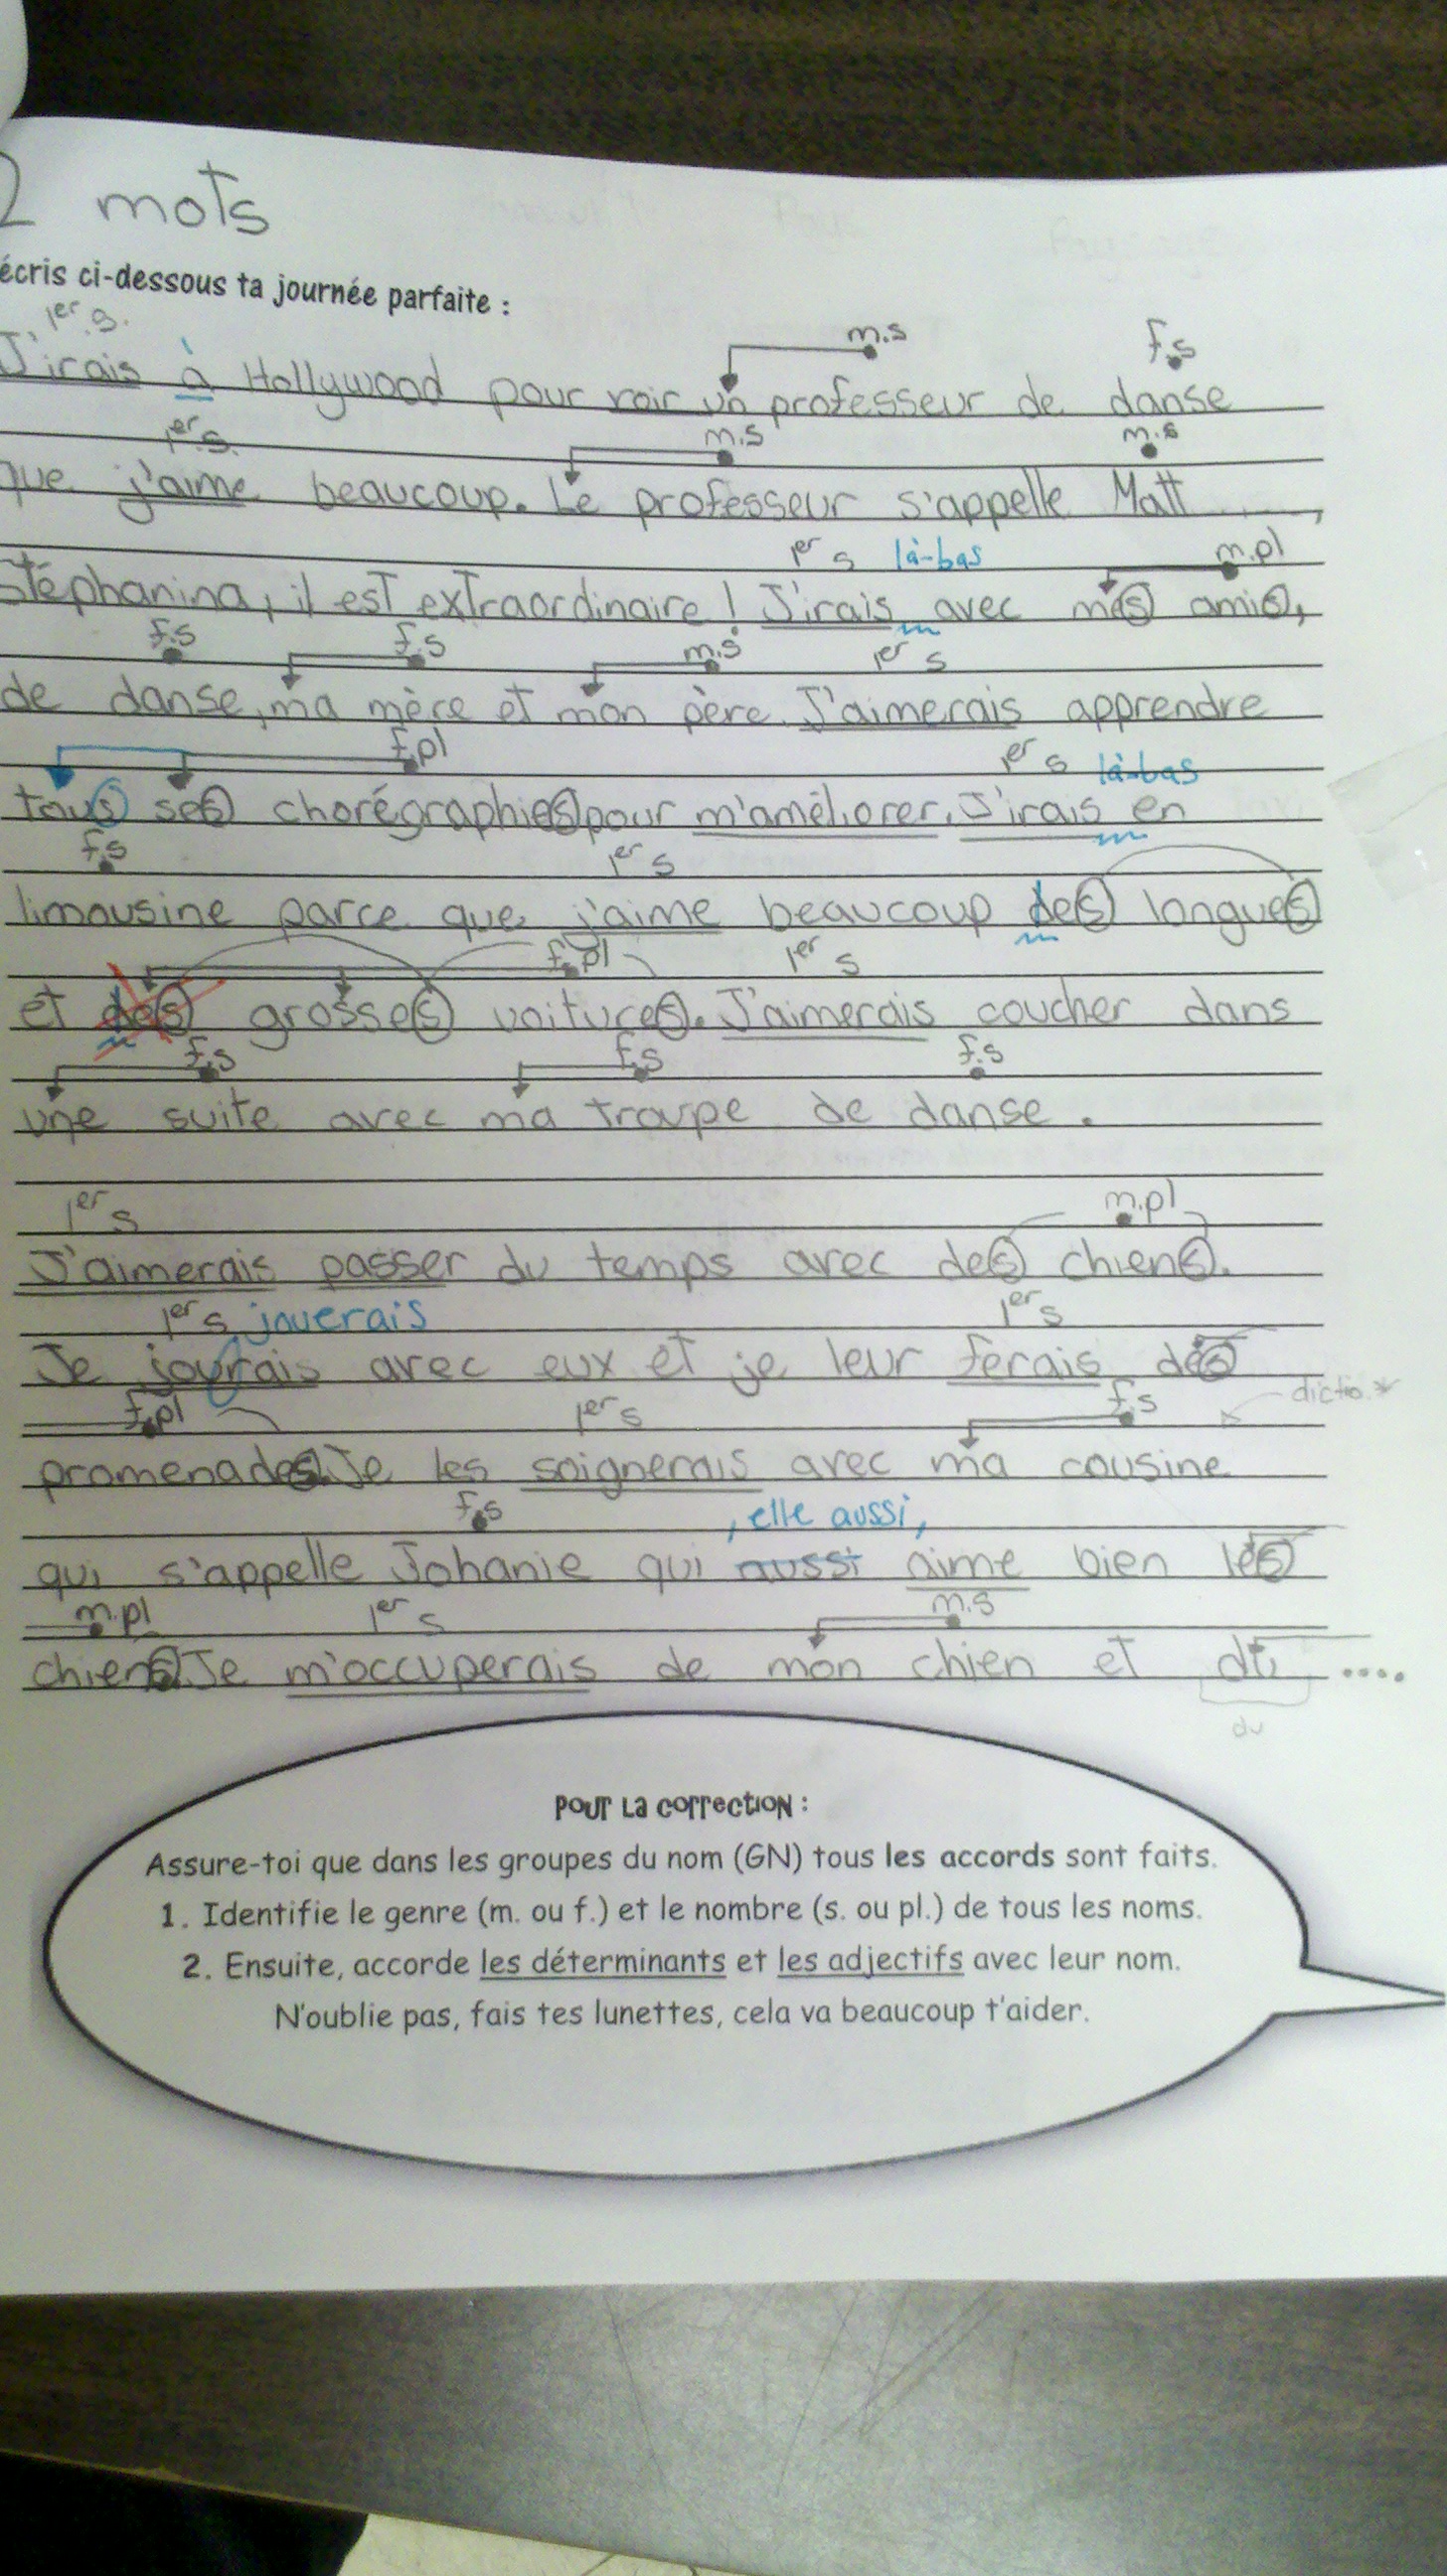 2 mots
écris ci-dessous ta journée parfaite :
1er s.
m.s f.s
J'irais à Hollywood pour voir un professeur de danse
1er s. m.s m.s
que j'aime beaucoup. Le professeur s'appelle Matt ,
1er s là-bas m.pl
Stéphanina, il est extraordinaire ! J'irais avec mes amis,
f.s f.s m.s 1er s
de danse, ma mère et mon père. J'aimerais apprendre
f.pl 1er s là-bas
tous ses chorégraphies pour m'améliorer. J'irais en
f.s 1er s
limousine parce que j'aime beaucoup des longues
f.pl 1er s
et des grosses voitures. J'aimerais coucher dans
f.s f.s f.s
une suite avec ma troupe de danse.
1er s m.pl
J'aimerais passer du temps avec des chiens.
1er s jouerais 1er s
Je jourais avec eux et je leur ferais des
f.pl 1er s f.s dictio.
promenades. Je les soignerais avec ma cousine
f.s , elle aussi,
qui s'appelle Johanie qui aussi aime bien les
m.pl 1er s m.s
chiens. Je m'occuperais de mon chien et du ....
du
Pour la correction :
Assure-toi que dans les groupes du nom (GN) tous les accords sont faits.
1. Identifie le genre (m. ou f.) et le nombre (s. ou pl.) de tous les noms.
2. Ensuite, accorde les déterminants et les adjectifs avec leur nom.
N'oublie pas, fais tes lunettes, cela va beaucoup t'aider.